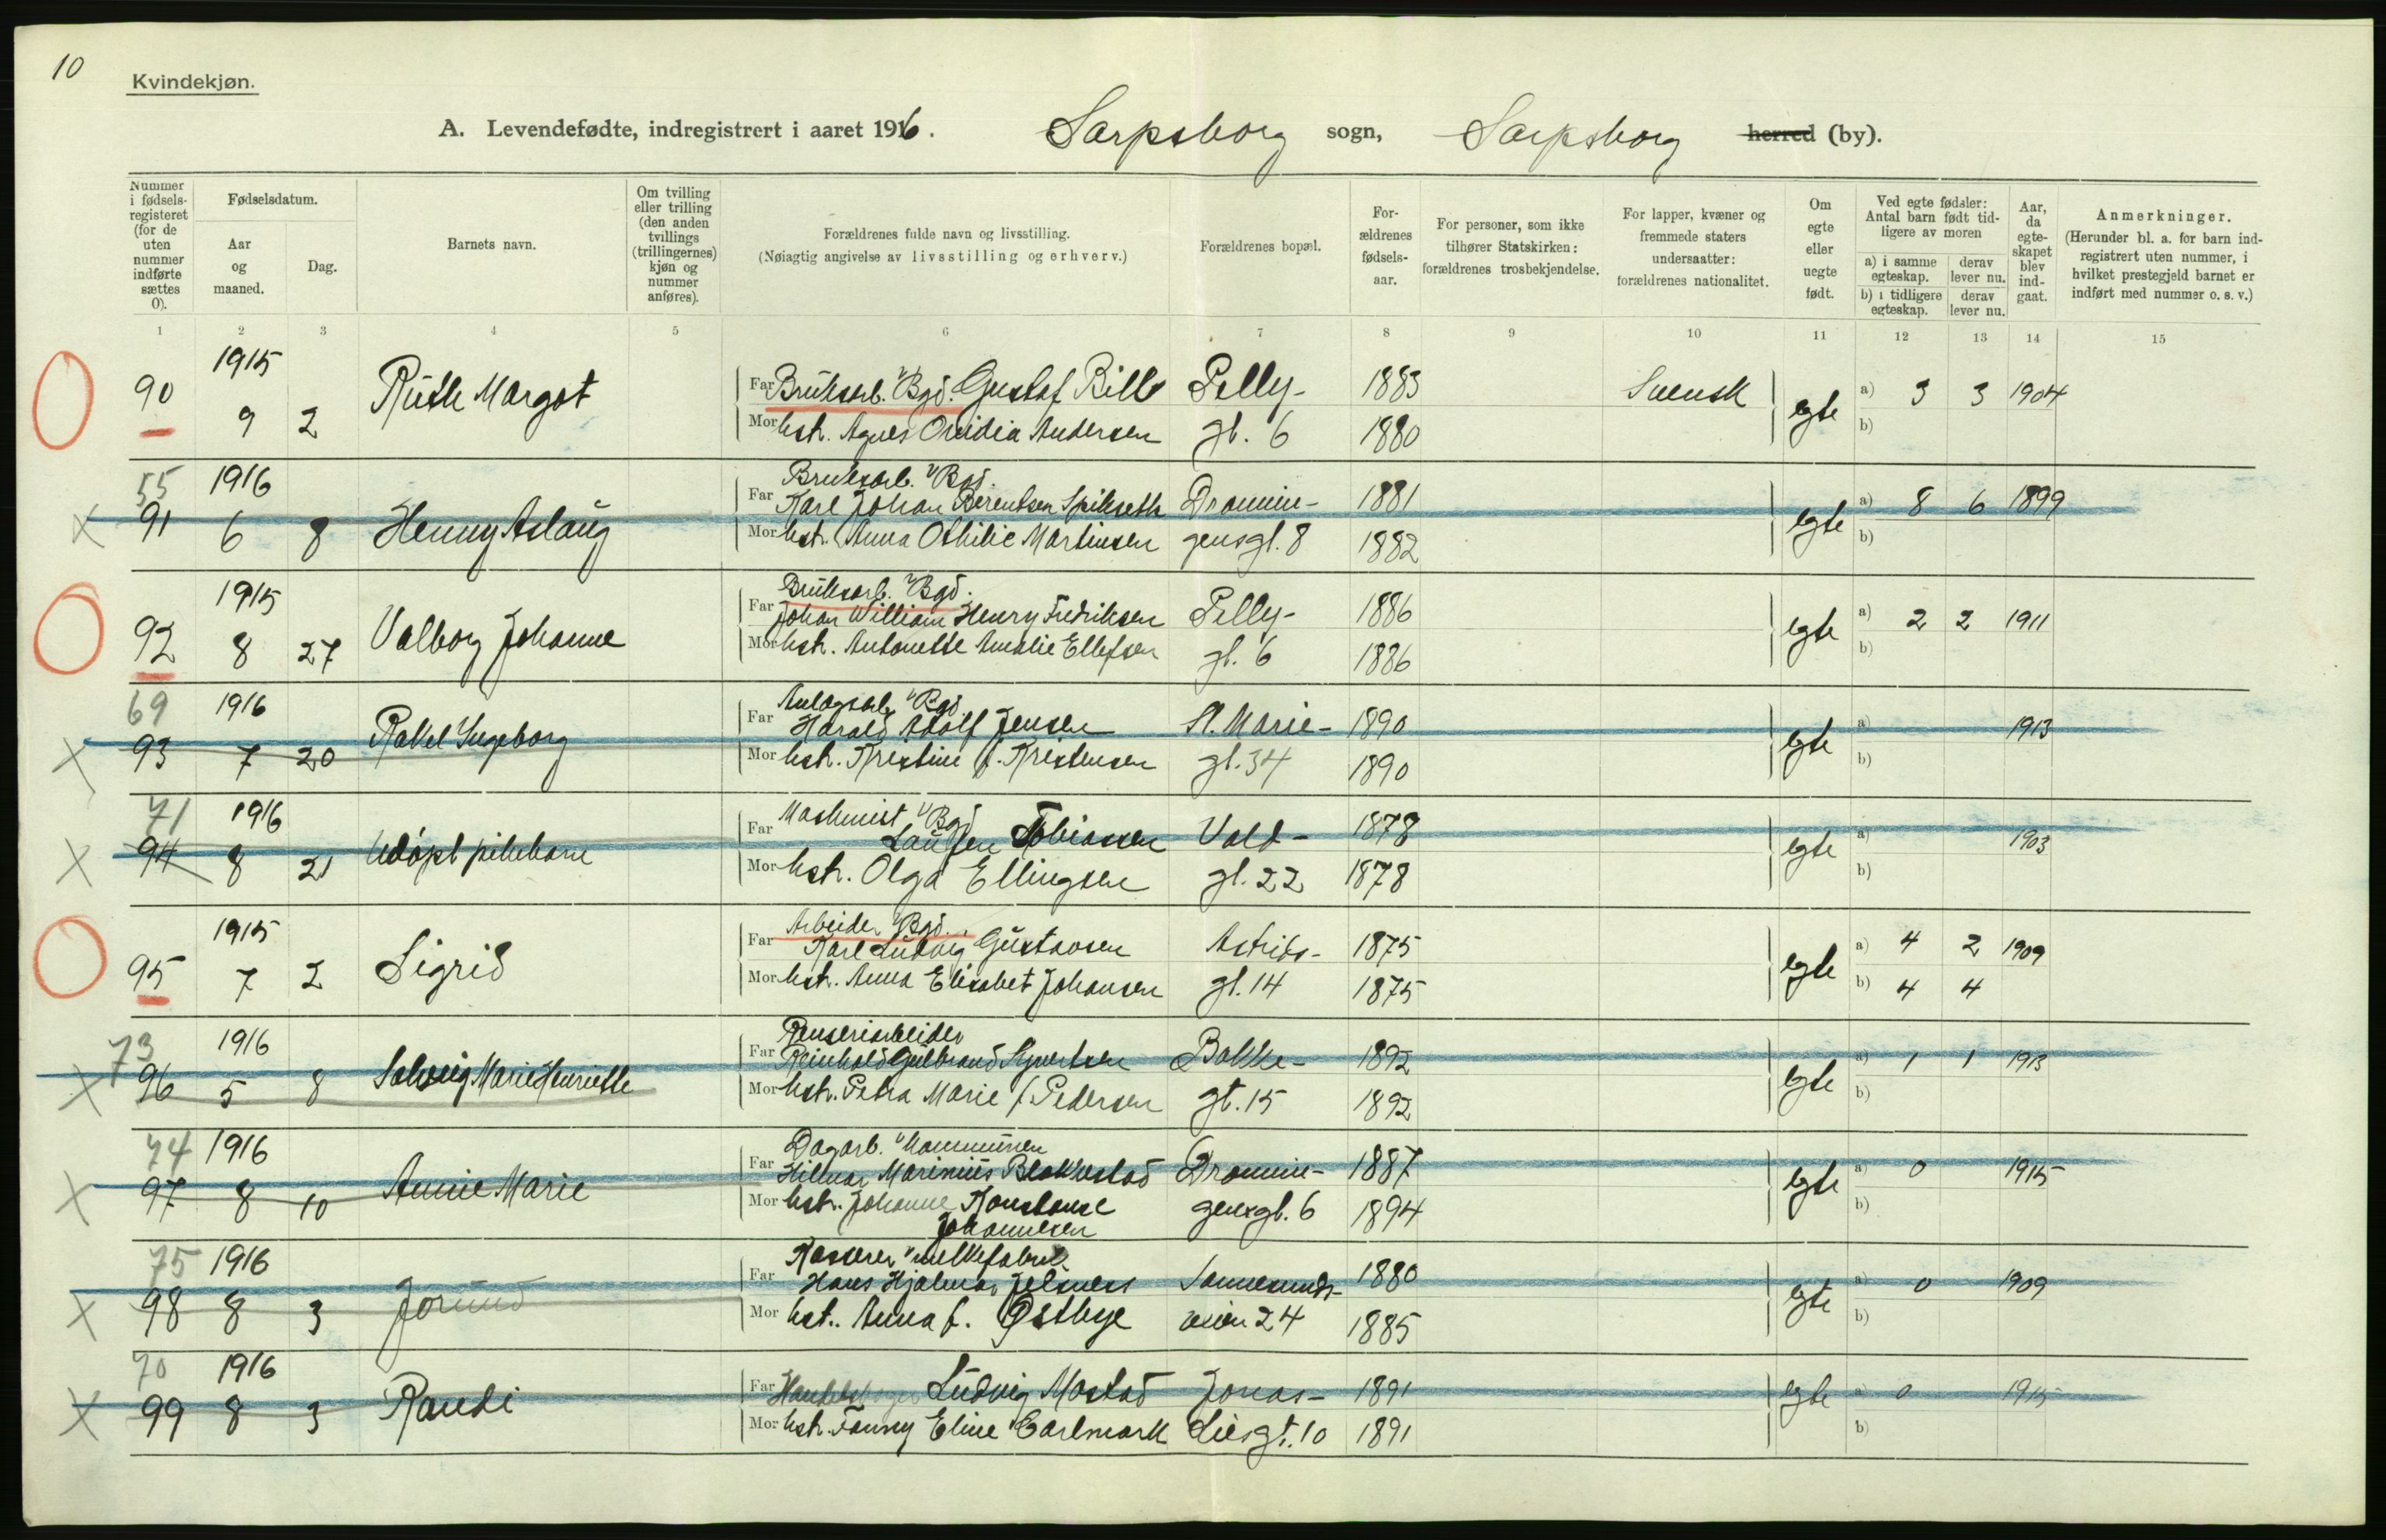 10
Kvindekjøn.
A. Levendefødte, indregistrert i aaret 1916. Sarpsborg sogn, Sarpsborg herred (by).
Nummer i fødsels-registeret (for de uten nummer indførte sættes 0).
Fødselsdatum.
Aar og maaned.
Dag.
Barnets navn.
Om tvilling eller trilling (den anden tvillings (trillingernes) kjøn og nummer anføres).
Forældrenes fulde navn og livsstilling.
(Nøiagtig angivelse av livsstilling og erhverv.)
Forældrenes bopæl.
For-ældrenes fødsels-aar.
For personer, som ikke tilhører Statskirken: forældrenes trosbekjendelse.
For lapper, kvæner og fremmede staters undersaatter: forældrenes nationalitet.
Om egte eller uegte født.
Ved egte fødsler: Antal barn født tid-ligere av moren
a) i samme egteskap. derav lever nu.
b) i tidligere egteskap. derav lever nu.
Aar, da egte-skapet blev ind-gaat.
Anmerkninger.
(Herunder bl. a. for barn ind-registrert uten nummer, i hvilket prestegjeld barnet er indført med nummer o. s. v.)
1 2 3 4 5 6 7 8 9 10 11 12 13 14 15
1915
90 9 2 Ruth Margot Far Bruksarb. v/Bgd. Gustaf Rill Pelly- 1883 Svensk egte a) 3 3 1904
Mor hstr. Agnes Ovidia Andersen gt. 6 1880 b)
55 1916 Bruksarb. v/Bgd.
91 6 8 Henny Aslaug Far Karl Johan Berentsen Spikseth Dronnin- 1881 egte a) 8 6 1899
Mor hstr. Anna Othilie Martinsen gensgt. 8 1882 b)
1915 Bruksarb. v/Bgd.
92 8 27 Valborg Johanne Far Johan William Henry Fredriksen Pelly- 1886 egte a) 2 2 1911
Mor hstr. Antonette Amalie Ellefsen gt. 6 1886 b)
69 1916 Anlægsarb. v/Bgd.
93 7 20 Rakel Ingeborg Far Harald Adolf Jensen St. Marie- 1890 egte a) 1913
Mor hstr. Kristine f. Kristensen gt. 34 1890 b)
71 1916 Maskinist v/Bgd
94 8 21 Udøpt pikebarn Far Lauren Tobiassen Vold- 1878 egte a) 1903
Mor hstr. Olga Ellingsen gt. 22 1878 b)
1915 Arbeider v/Bgd.
95 7 2 Sigrid Far Karl Ludvig Gustavsen Astrids- 1875 egte a) 4 2 1909
Mor hstr. Anna Elisabet Johansen gt. 14 1875 b) 4 4
73 1916 Renseriarbeider
96 5 8 Solveig Marie Henriette Far Reinhold Gulbrand Syvertsen Bakke- 1892 egte a) 1 1 1913
Mor hstr. Petra Marie f. Pedersen gt. 15 1892 b)
74 1916 Dagarb. v/Kommunen
97 8 10 Annie Marie Far Hilmar Marinius Blakkestad Dronnin- 1887 egte a) 0 1915
Mor hstr. Johanne Konstanse Johannesen gensgt. 6 1894 b)
75 1916 Kasserer v/melkefabrik
98 8 3 Jorund Far Hans Hjalmar Jelsness Sannesunds- 1880 egte a) 0 1909
Mor hst. Anna f. Østbye veien 24 1885 b)
70 1916
99 8 3 Randi Far Ludvig Mostad Jonas- 1891 egte a) 0 1915
Mor hstr. Fanny Eline Carlmark Liesgt. 10 1891 b)